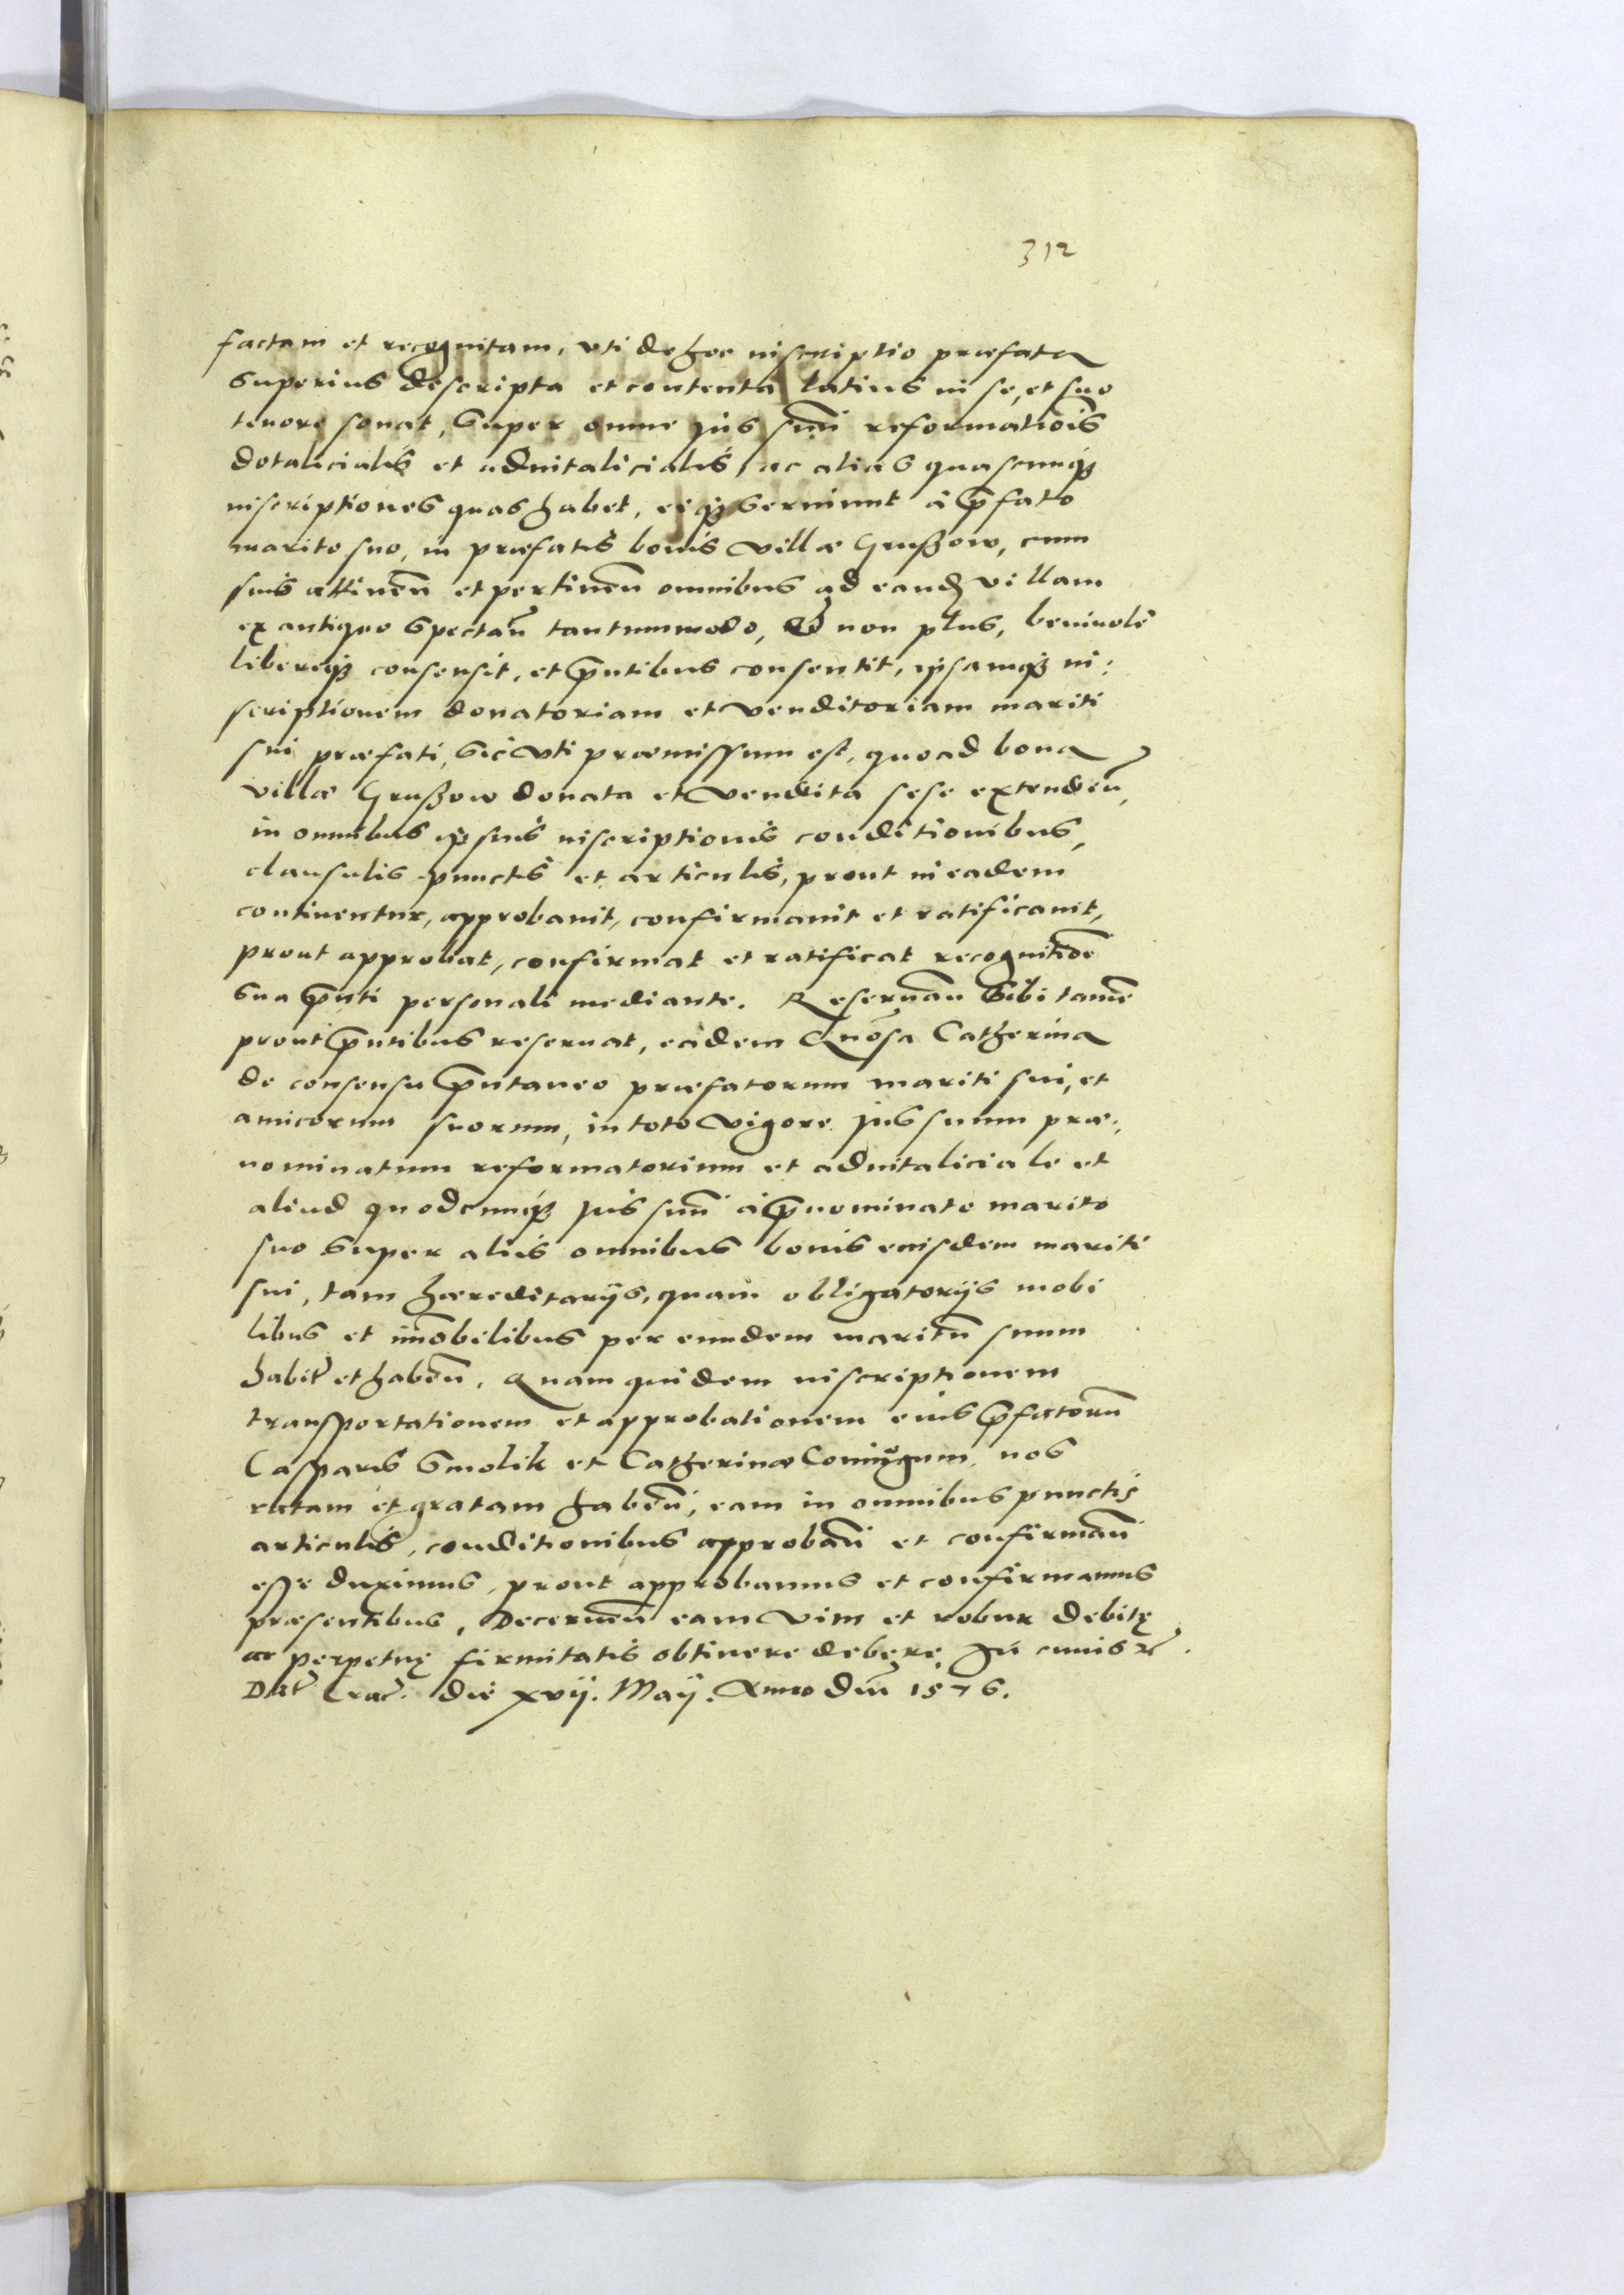 312
factam et recognitam, vti de hoc inscriptio præfata
superius descripta et contenta latius in se, et suo
tenore sonat, super omne jus suũ reformatiõis
dotalicialis et aduitalicialis, ac alias quascunqꝫ
inscriptiones quas habet, eiqꝫ seruiunt à p̃fato
marito suo, in præfatis bonis villæ Grussow, cum
suis attinen̄ et pertinen̄ omnibus ad eand villam
ex antiquo spectan̄ tantummodo, & non plus, beniuolè
libereqꝫ consensit, et p̃ntibus consentit, ipsamqꝫ in:
scriptionem donatoriam et venditoriam mariti
sui præfati, sic vti præmissum est, quoad bona
villæ Grussow donata et vendita sese extenden̄,
in omnibus ipsius inscriptionis conditionibus,
clausulis punctis et articulis, prout in eadem
continentur, approbauit, confirmauit et ratificauit,
prout approbat, confirmat et ratificat recognitiõe
sua p̃nti personali mediante. Reseruan̄ sibi tamẽ
prout p̃ntibus reseruat, eadem Gnõsa Catherina
de consensu p̃ntaneo præfatorum mariti sui, et
amicorum suorum, in toto vigore jus suum præ:
nominatum reformatorium et aduitaliciale et
aliud quodcunqꝫ jus suũ à p̃nominato marito
suo super aliis omnibus bonis eiusdem mariti
sui, tam hæreditarijs, quam obligatorijs mobi
libus et im̃obilibus per eundem maritũ suum
habit̃ et haben̄. Quam quidem inscriptionem
transportationem et approbationem eius p̃fatorũ
Casparis Smolik et Catherinæ Coniugum, nos
ratam et gratam haben̄, eam in omnibus punctis
articulis, conditionibus approban̄ et confirman̄
esse duximus, prout approbamus et confirmamus
præsentibus, Decernen̄ eam vim et robur debitę
ac perpetuę firmitatis obtinere debere. In cuius rei
Dat̃ Crac̃. die xvij. Maij. Anno Dñi 1576.